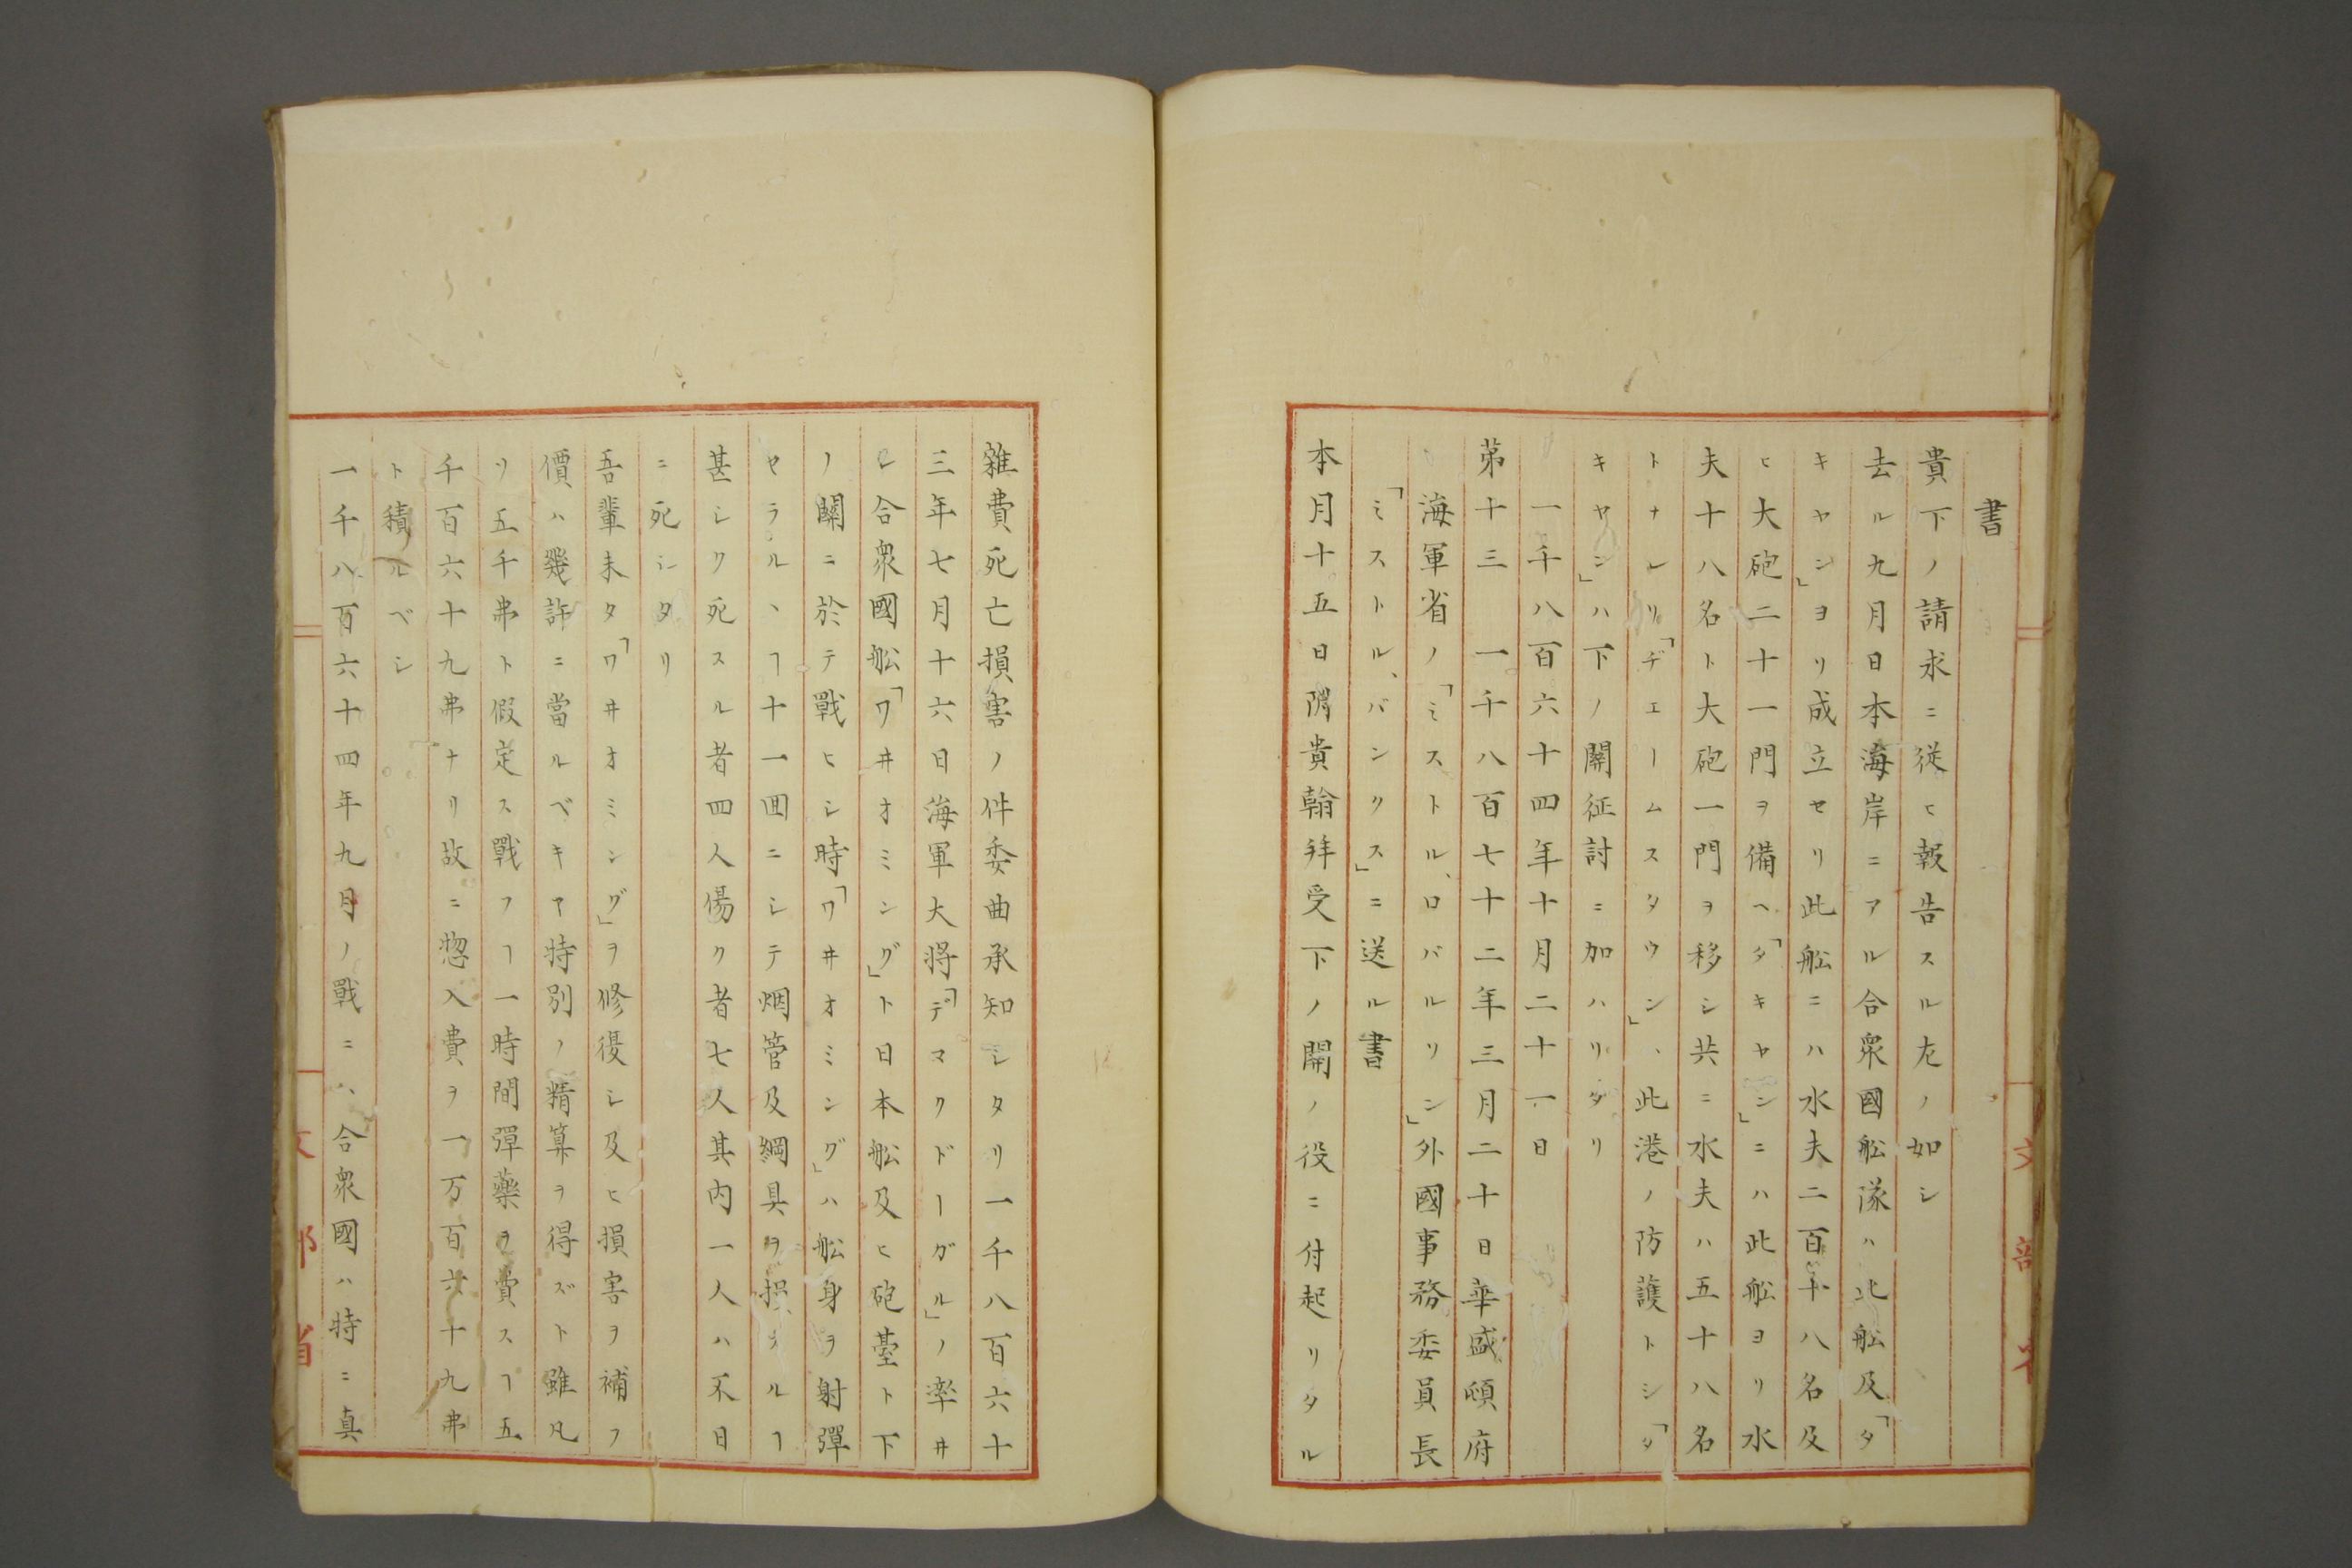 書
貴下ノ請求ニ従ヒ報告スル左ノ如シ
去ル九月日本海岸ニアル合衆國舩隊ハ此舩及「タ
キヤン」ヨリ成立セリ此舩ニハ水夫二百十八名及
ヒ大砲二十一門ヲ備ヘ「タキヤン」ニハ此舩ヨリ水
夫十八名ト大砲一門ヲ移シ共ニ水夫ハ五十八名
トナレリ「ヂエームスタウン」ハ此港ノ防護トシ「タ
キヤン」ハ下ノ關征討ニ加ハリタリ
一千八百六十四年十月二十一日
第十三 一千八百七十二年三月二十日華盛頓府
海軍省ノ「ミストル、ロバルリン」外國事務委員長
「ミストル、バンクス」ニ送ル書
本月十五日附貴翰拜受下ノ關ノ役ニ付起リタル
雜費死亡損害ノ件委曲承知シタリ一千八百六十
三年七月十六日海軍大將「デマクドーガル」ノ率ヰ
シ合衆國舩「ワヰオミング」ト日本舩及ヒ砲臺ト下
ノ關ニ於テ戰ヒシ時「ワヰオミング」ハ舩身ヲ射彈
セラルヽヿ十一囬ニシテ烟管及綱具ヲ損スルヿ
甚シク死スル者四人傷ク者七人其内一人ハ不日
ニ死シタリ
吾輩未タ「ワヰオミング」ヲ修復シ及ヒ損害ヲ補フ
價ハ幾許ニ當ルベキヤ特別ノ精算ヲ得ズト雖凡
ソ五千弗ト假定ス戰フヿ一時間彈藥ヲ費スヿ五
千百六十九弗ナリ故ニ惣入費ヲ一万百六十九弗
ト積ルベシ
一千八百六十四年九月ノ戰ニハ合衆國ハ特ニ真
文部省
文部省